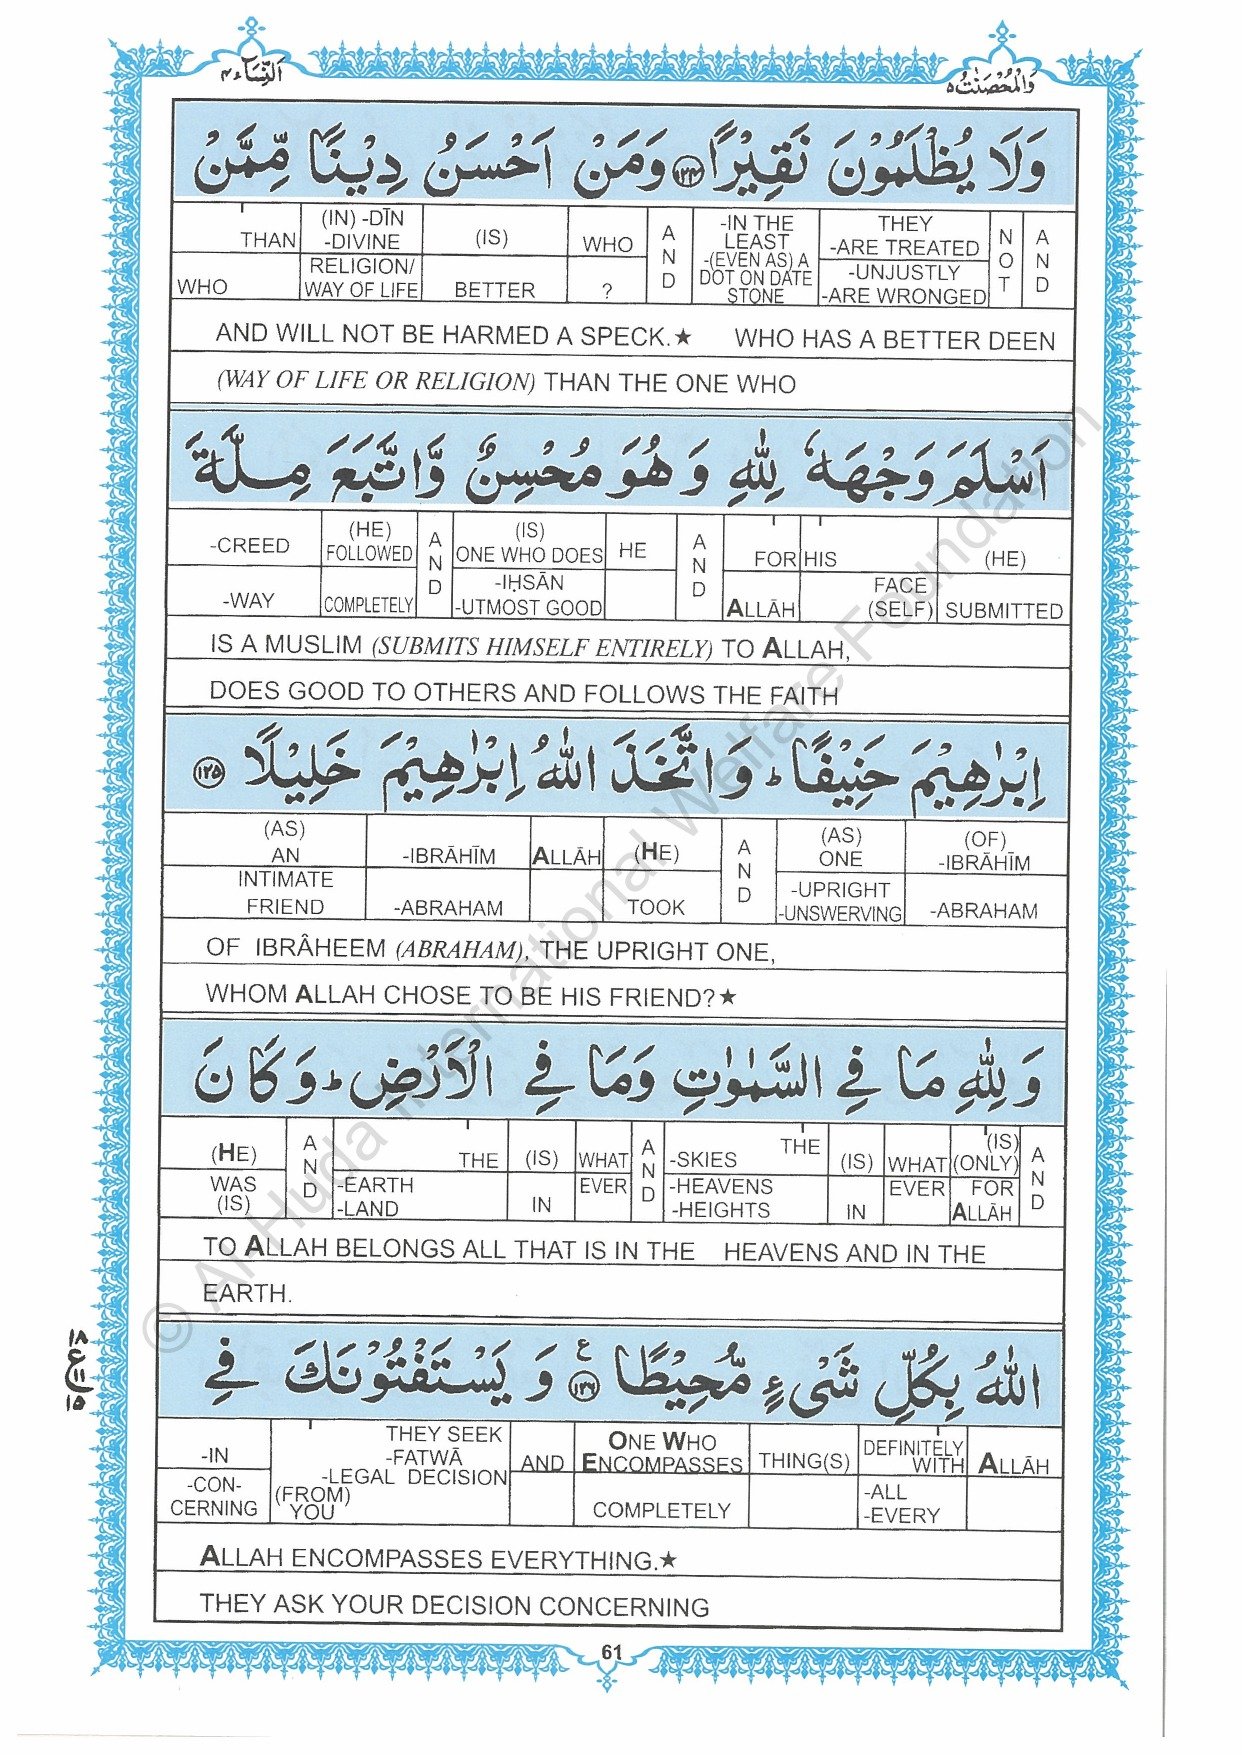 اَلنِّسَاۗء ۴
وَالْمُحْصَنٰتُ ۵
وَلَا يُظْلَمُوْنَ نَقِيْرًا ۝۱۲۴ وَمَنْ اَحْسَنُ دِيْنًا مِّمَّنْ
THAN WHO | (IN) -DĪN -DIVINE RELIGION/ WAY OF LIFE | (IS) BETTER | WHO ? | AND | -IN THE LEAST -(EVEN AS) A DOT ON DATE STONE | THEY -ARE TREATED -UNJUSTLY -ARE WRONGED | NOT | AND
AND WILL NOT BE HARMED A SPECK.★ WHO HAS A BETTER DEEN
(WAY OF LIFE OR RELIGION) THAN THE ONE WHO
اَسْلَمَ وَجْهَهٗ لِلّٰهِ وَهُوَ مُحْسِنٌ وَّاتَّبَعَ مِلَّةَ
-CREED -WAY | (HE) FOLLOWED COMPLETELY | AND | (IS) ONE WHO DOES -IḤSĀN -UTMOST GOOD | HE | AND | FOR ALLĀH | HIS FACE (SELF) | (HE) SUBMITTED
IS A MUSLIM (SUBMITS HIMSELF ENTIRELY) TO ALLAH,
DOES GOOD TO OTHERS AND FOLLOWS THE FAITH
اِبْرٰهِيْمَ حَنِيْفًا ؕ وَاتَّخَذَ اللّٰهُ اِبْرٰهِيْمَ خَلِيْلًا ۝۱۲۵
(AS) AN INTIMATE FRIEND | -IBRĀHĪM -ABRAHAM | ALLĀH | (HE) TOOK | AND | (AS) ONE -UPRIGHT -UNSWERVING | (OF) -IBRĀHĪM -ABRAHAM
OF IBRÂHEEM (ABRAHAM), THE UPRIGHT ONE,
WHOM ALLAH CHOSE TO BE HIS FRIEND?★
وَلِلّٰهِ مَا فِي السَّمٰوٰتِ وَمَا فِي الْاَرْضِ ؕ وَكَانَ
(HE) WAS (IS) | AND | THE -EARTH -LAND | (IS) IN | WHAT EVER | AND | THE -SKIES -HEAVENS -HEIGHTS | (IS) IN | WHAT EVER | (IS) (ONLY) FOR ALLĀH | AND
TO ALLAH BELONGS ALL THAT IS IN THE HEAVENS AND IN THE
EARTH.
اللّٰهُ بِكُلِّ شَیْءٍ مُّحِيْطًا ۝۱۲۶ ع وَيَسْتَفْتُوْنَكَ فِي
-IN -CON-CERNING | THEY SEEK -FATWĀ -LEGAL DECISION (FROM) YOU | AND | ONE WHO ENCOMPASSES COMPLETELY | THING(S) | DEFINITELY WITH -ALL -EVERY | ALLĀH
ALLAH ENCOMPASSES EVERYTHING.★
THEY ASK YOUR DECISION CONCERNING
۱۸
ع ۱۱
۱۵
61
© Al-Huda International Welfare Foundation